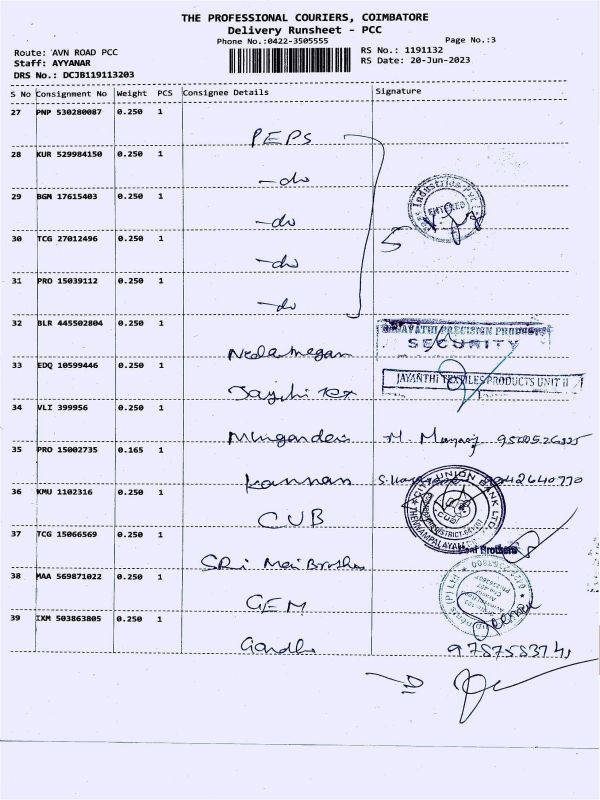 THE PROFESSIONAL COURIERS, COIMBATORE
Delivery Runsheet - PCC
Phone No.:0422-3505555
Page No.:3
Route: AVN ROAD PCC
RS No.: 1191132
Staff: AYYANAR
RS Date: 20-Jun-2023
DRS No.: DCJB119113203
S No Consignment No Weight PCS Consignee Details Signature
27 PNP 530280087 0.250 1
PEPS
28 KUR 529984150 0.250 1
-do
29 BGM 17615403 0.250 1
-do
ENTERED
30 TCG 27012496 0.250 1
-do
5
31 PRO 15039112 0.250 1
-do
32 BLR 445502804 0.250 1
JAYATHI PRECISION PRODUCTS
SECURITY
33 EDQ 10599446 0.250 1
JAYANTHI TEXTILES PRODUCTS UNIT II
34 VLI 399956 0.250 1
35 PRO 15002735 0.165 1
Kannan
CITY UNION BANK LTD.
36 KMU 1102316 0.250 1
CUB
37 TCG 15066569 0.250 1
Brothers
SRi
38 MAA 569871022 0.250 1
GEM
39 IXM 503863805 0.250 1